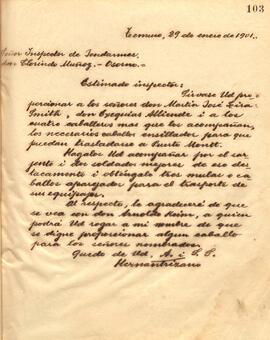 103
Temuco, 29 de enero de 1901.
Señor Inspector de Jendarmes
don Clorindo Muñoz.- Osorno.-
Estimado inspector:
Sírvase Ud pro-
porcionar a los señores don Martin José
Smith, don Ezequiel Alliende i a los
cuatro caballeros mas que los acompañan,
los necesarios caballos ensillados para que
puedan trasladarse a Puerto Montt.
Hagalos Ud acompañar por el sar-
jento i dos soldados mejores de ese des-
tacamento i obténgales tres mulas o ca-
ballos aparejados para el trasporte de
sus equipajes.
Al respecto, le agradeceré de que
se vea con don Arnoldo Keim, a quien
podrá Ud rogar a mi nombre de que
se digne proporcionar algun caballo
para los señores nombrados.
Quedo de Ud. A. i S. S.
Hernan Trizano